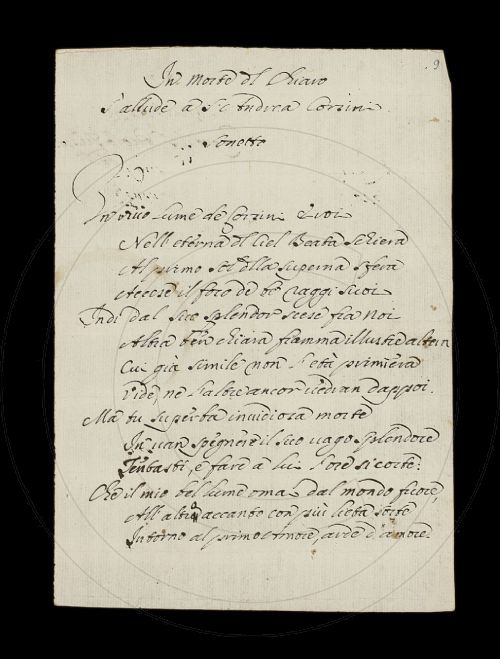 9
In Morte del Chiaro
S'allude a S. Andrea Corsini
Sonetto
Un vivo lume de Corsin
Nell'eterna del Ciel Beata schiera
Al primo sol della superna sfera
Accese il foco de bei raggi suoi
Indi dal suo splendor scese fra noi
Altra ben chiara fiamma illustre
Cui già simile non l'età primiera
Vide, ne l'altre ancor vedran dappoi.
Ma tu superba invidiosa morte
In van spegnere il suo vago splendore
Tentasti, e fare a lui l'ore sì corte:
Che il mio bel lume omai dal mondo fuore,
All'altro accanto con più lieta sorte
Intorno al primo Amore, arde d'amore.